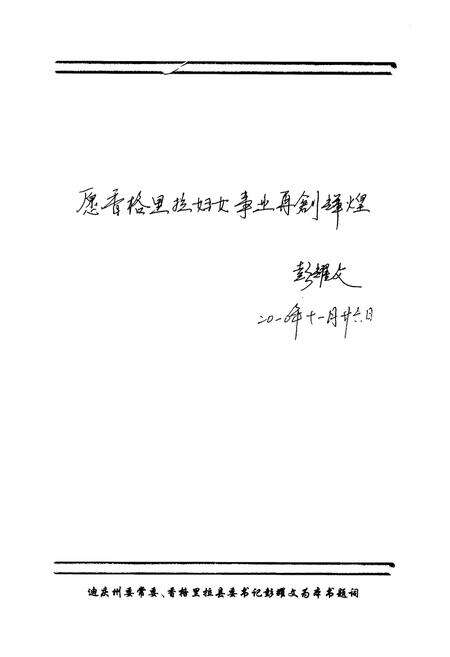 愿香格里拉妇女事业再創辉煌
彭耀文
二〇一〇年十一月廿六日
迪庆州委常委、香格里拉县委书记彭耀文为本书题词